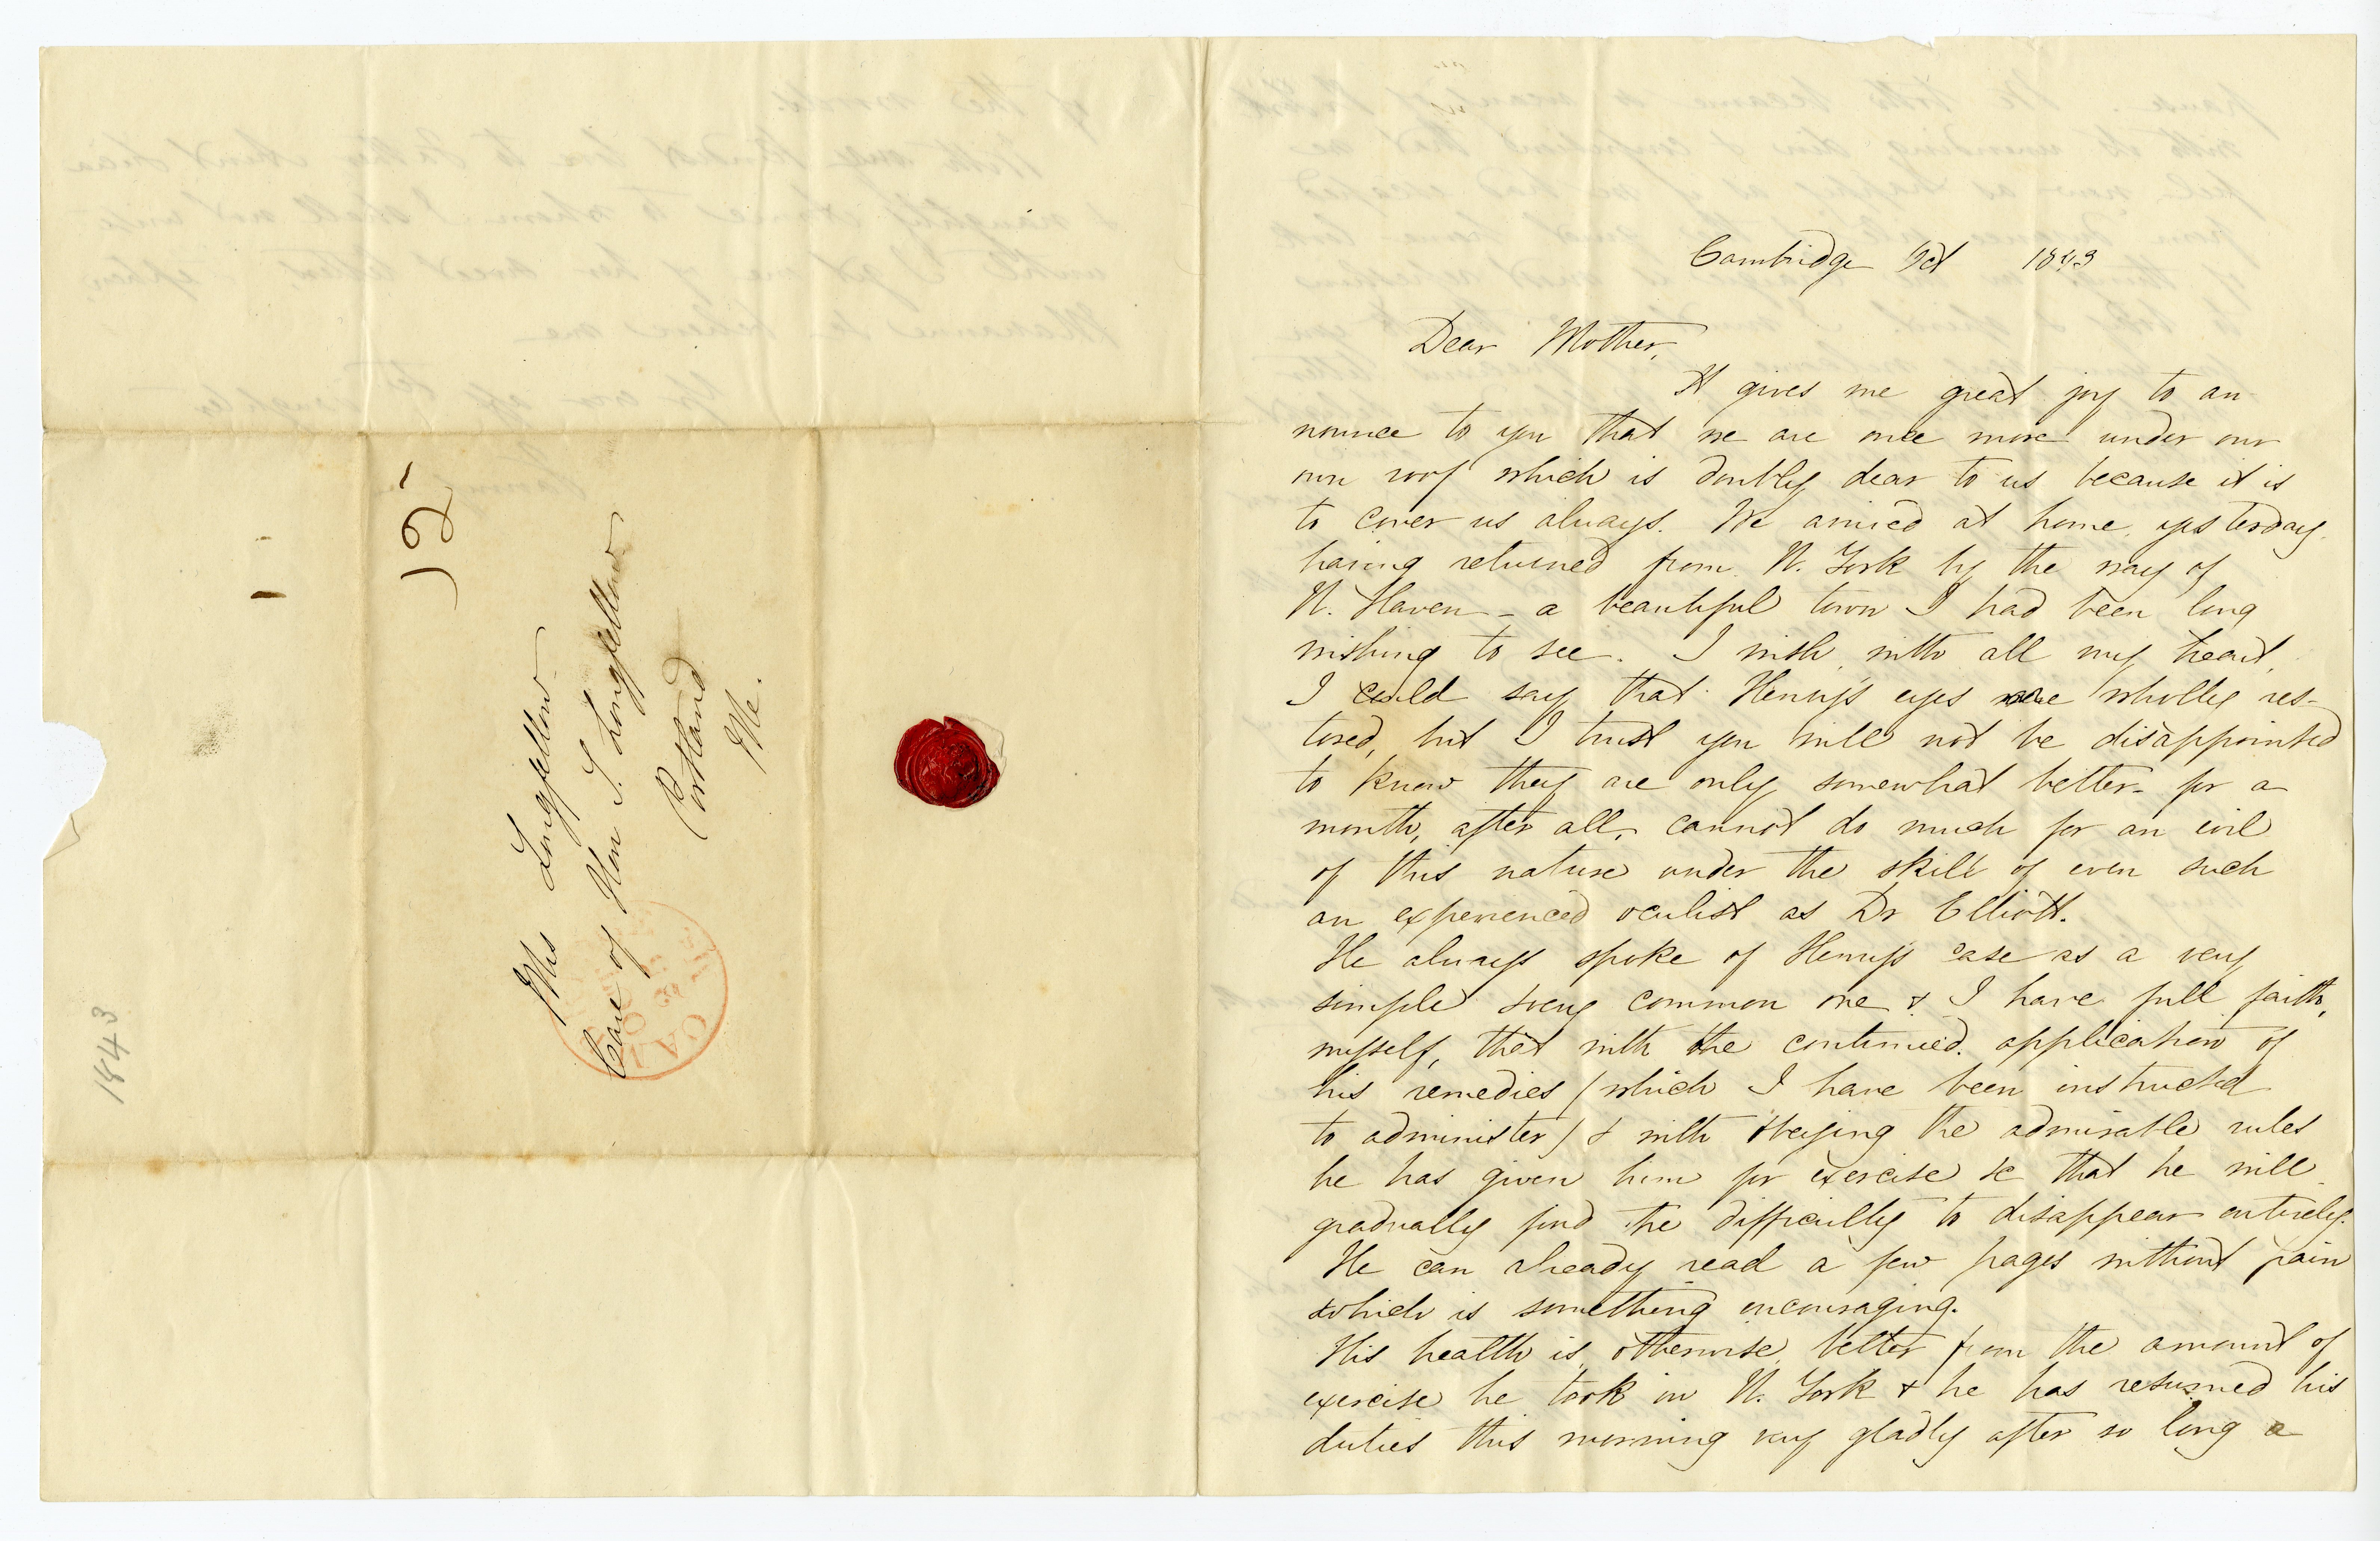 Cambridge Oct 1843
Dear Mother,
It gives me great joy to an
nounce to you that we are once more under our
own roof which is doubly dear to us because it is
to cover us always. We arrived at home yesterday
having returned from N. York by the way of
N. Haven - a beautiful town I had been long
wishing to see. I wish with all my heart
I could say that Henry's eyes were wholly res-
tored, but I trust you will not be disappointed
to know they are only somewhat better - for a
month, after all, cannot do much for an evil
of this nature under the skill of even such
an experienced oculist as Dr Elliott.
He always spoke of Henry's case as a very
simple & very common one & I have full faith,
myself, that with the continued application of
his remedies (which I have been instructed
to administer) & with obeying the admirable rules
he has given him for exercise &c that he will
gradually find the difficulty to disappear entirely.
He can already read a few pages without pain
which is something encouraging.
His health is otherwise better from the amount of
exercise he took in N. York & he has resumed his
duties this morning very gladly after so long a
Mrs Longfellow
Care of Hon S. Longfellow
Portland
Me.
1843